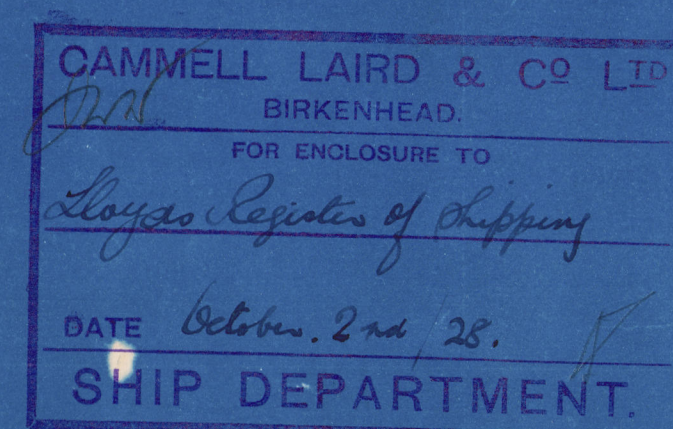 CAMMELL LAIRD & Cº LTD
BIRKENHEAD.
FOR ENCLOSURE TO
Lloyds Register of Shipping
DATE October. 2nd / 28.
SHIP DEPARTMENT.